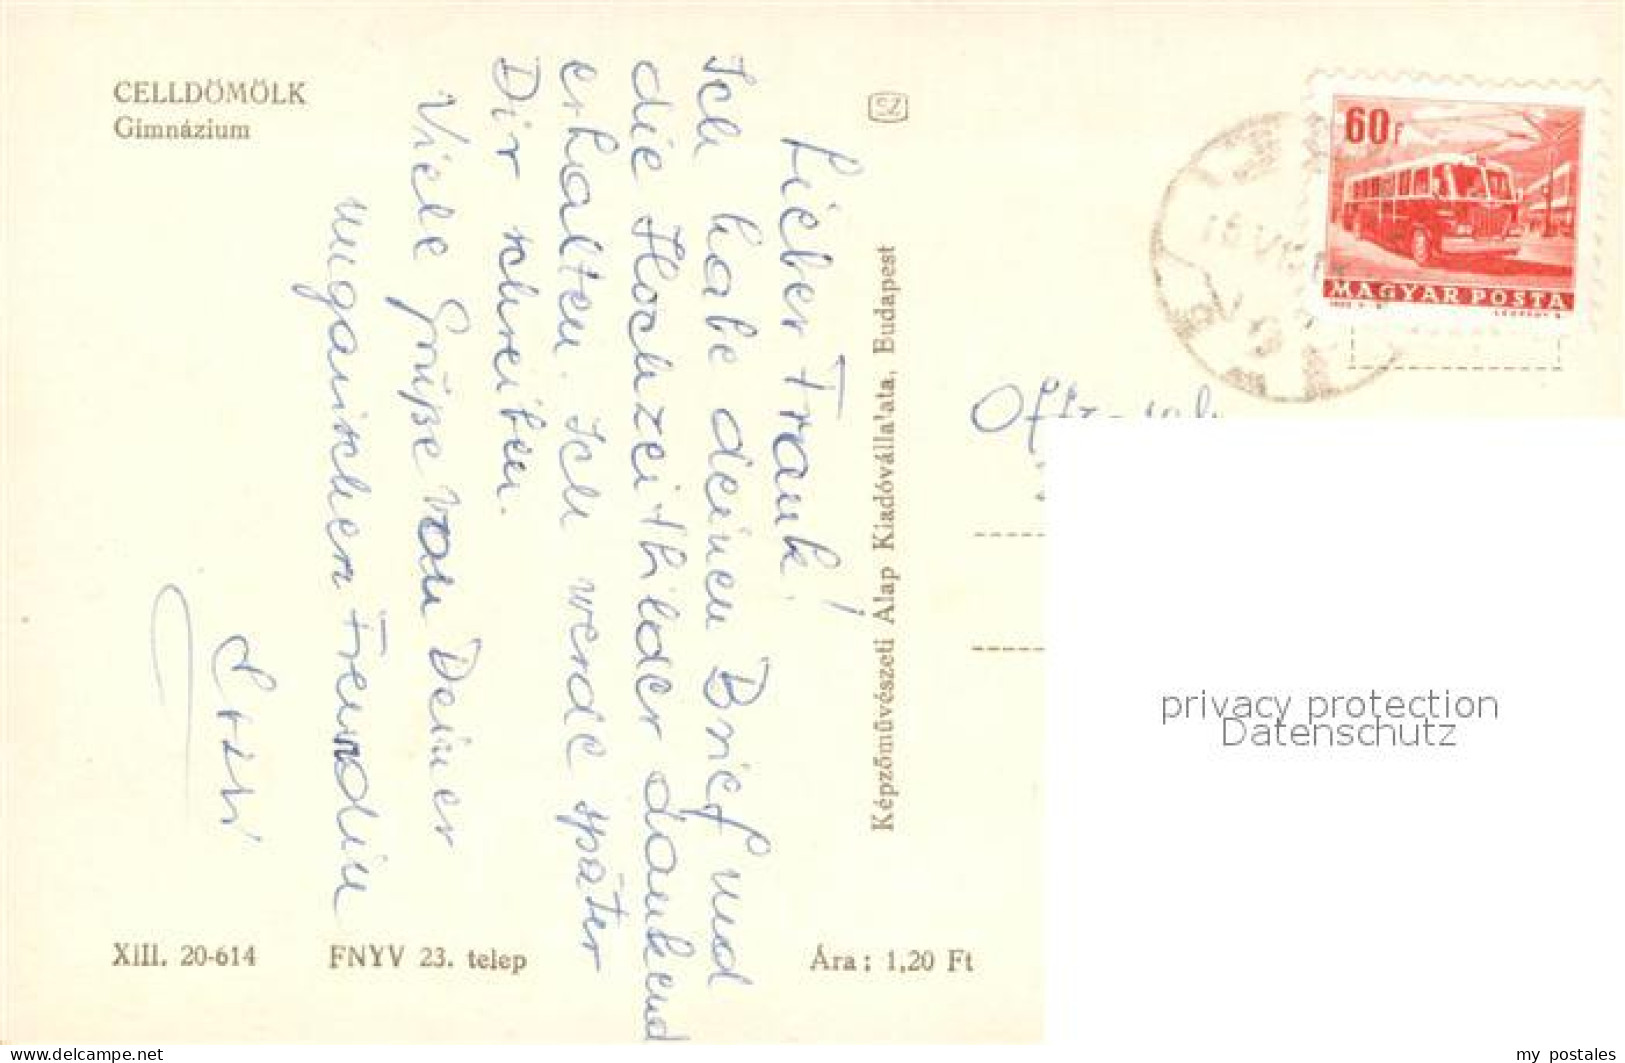 CELLDÖMÖLK
Gimnázium
Lieber Frank!
Ich habe deinen Brief und
die Hochzeitbilder dankend
erhalten. Ich werde später
Dir schreiben.
Viele Grüße von Deiner
ungarischen Freundin
XIII. 20-614
FNYV 23. telep
Ára: 1,20 Ft
Képzőművészeti Alap Kiadóvállalata, Budapest
SZ
60f
MAGYAR POSTA
privacy protection
Datenschutz
www.delcampe.net
my_postales